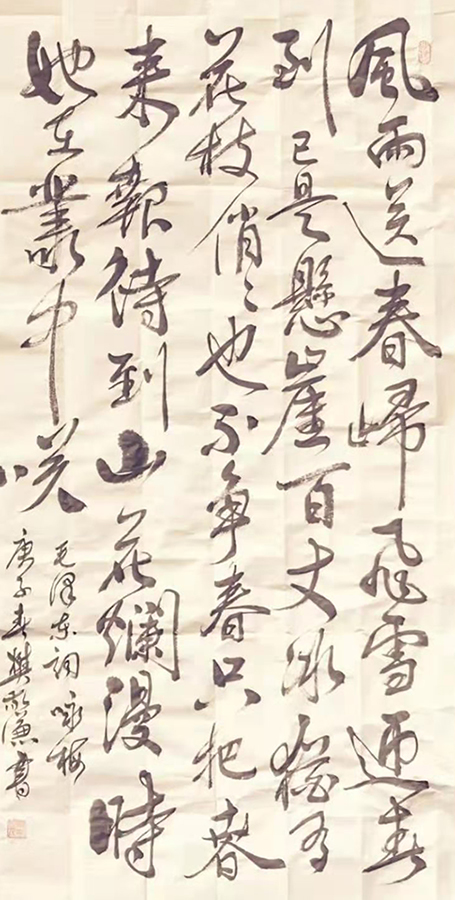 風雨送春歸飛雪迎春
到已是懸崖百丈冰猶有
花枝俏〻也不争春只把春
来報待到山花爛漫時
她在叢中咲
毛澤东詞咏梅
庚子春樊書